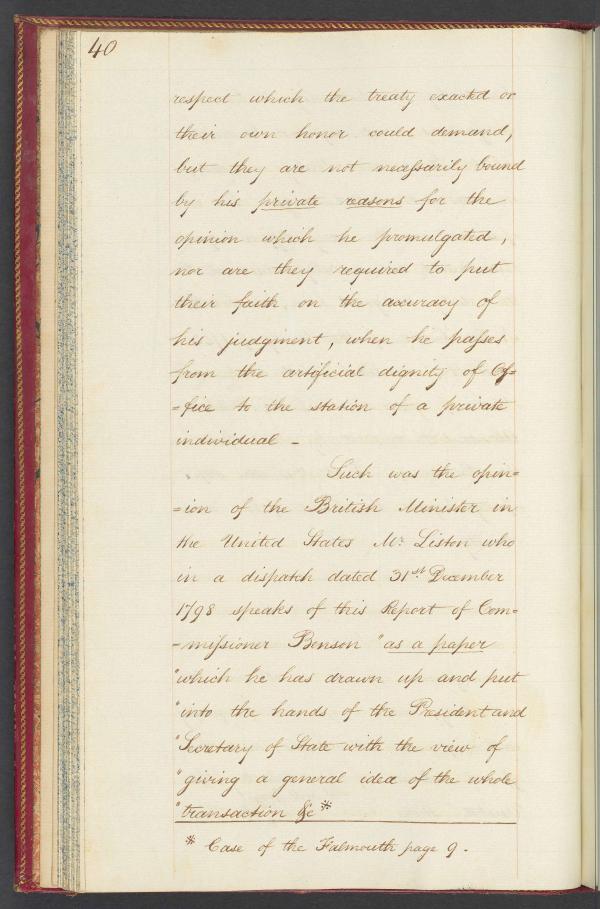 40
respect which the treaty exacted or
their own honor could demand,
but they are not neceſsarily bound
by his private reasons for the
opinion which he promulgated,
nor are they required to put
their faith on the accuracy of
his judgment, when he paſses
from the artificial dignity of Of=
=fice to the station of a private
individual –
Such was the opin=
=ion of the British Minister in
the United States Mr. Liston who
in a dispatch dated 31st. December
1798 speaks of this Report of Com=
=miſsioner Benson "as a paper
"which he has drawn up and put
"into the hands of the President and
"Secretary of State with the view of
"giving a general idea of the whole
"transaction &c *
* Case of the Falmouth page 9.